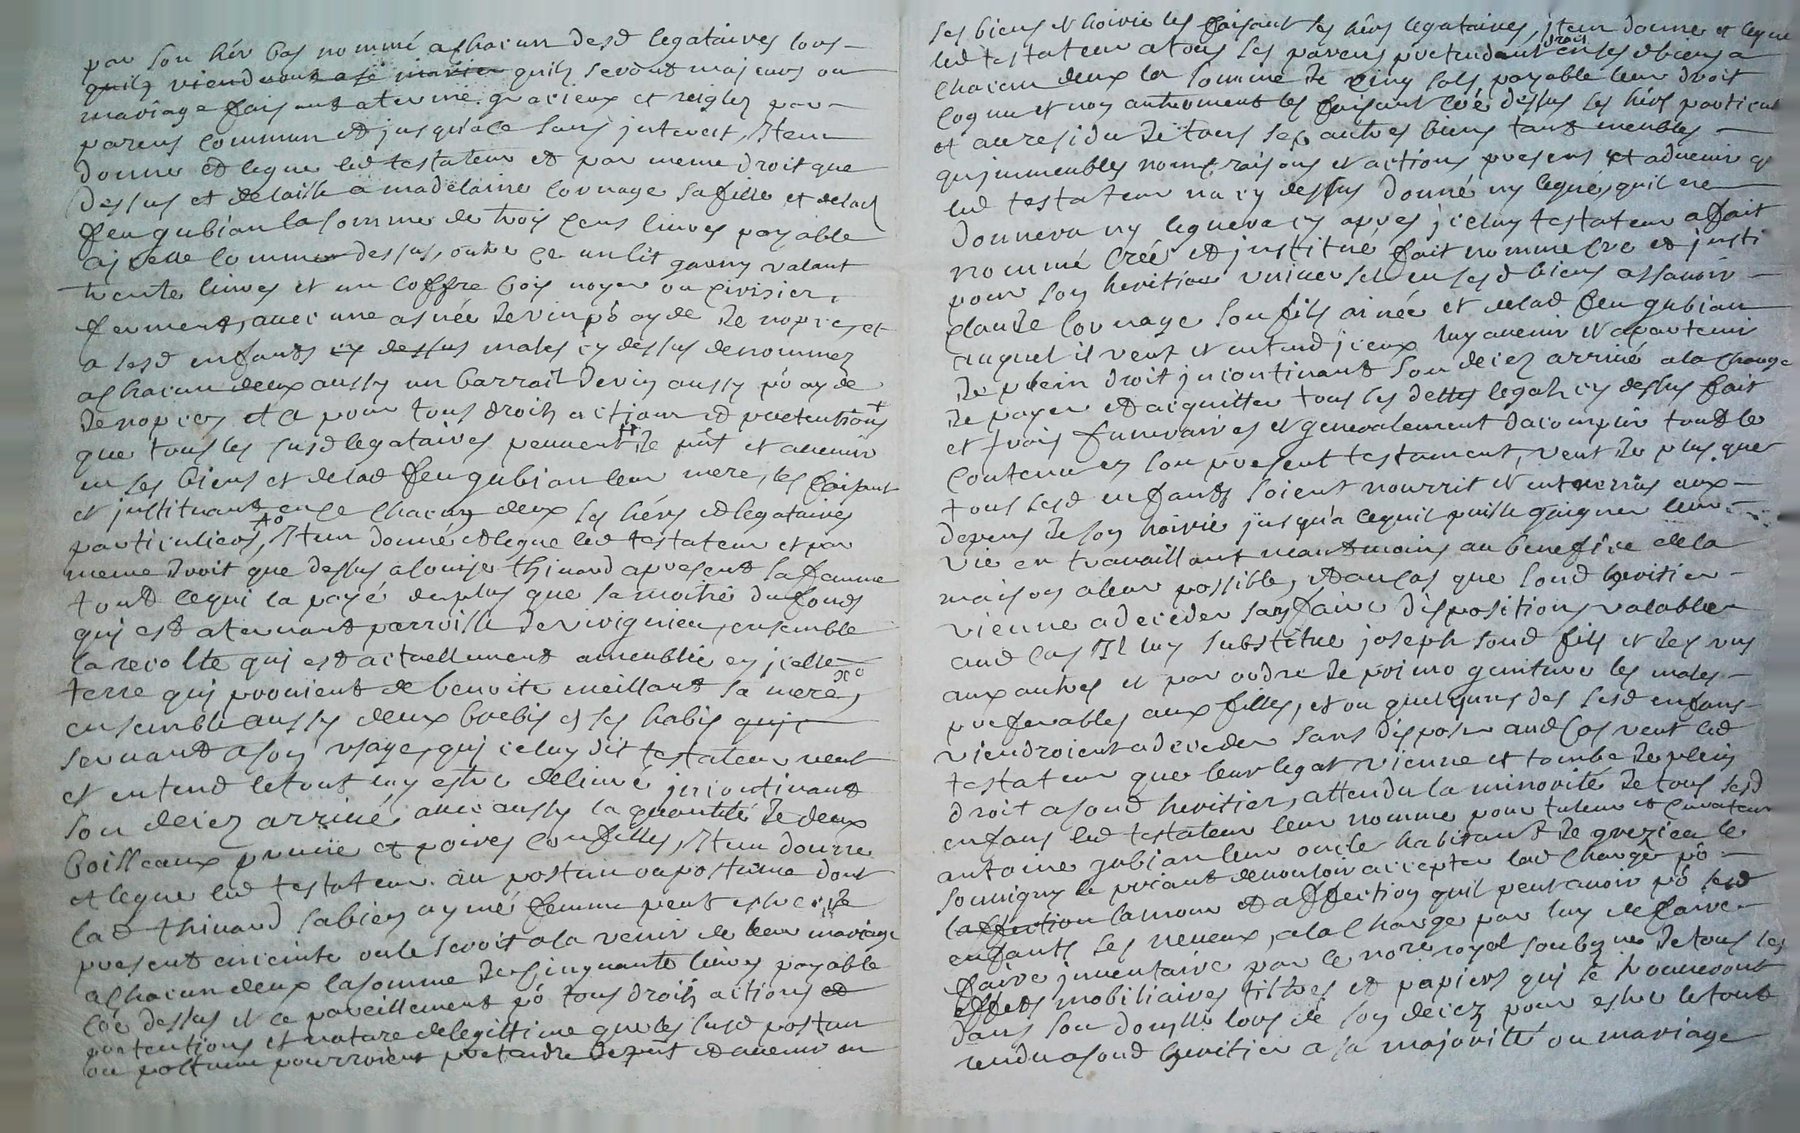 par son hér bas nommé a chacun desd legataires lors
quilz viendront a se marier quilz seront majeurs ou
mariage faisant a terme gracieux et reiglez par
parens commun et jusqu'a ce sans interest, Item
donne et legue led testateur et par meme droit que
dessus et delaisse a madelaine cornage sa fille et de lad
feu gubian la somme de trois cens livres payable
a icelle comme dessus, outre ce un lit garny valant
trente livres et un coffre bois noyer ou cerisier
fermant, avec une asnée de vin pô ayde de nopces, et
a sesd enfants cy dessus males cy dessus denommez
a chacun deux aussy un barrail de vin aussy pô ayde
de nopces et ce pour tous droits action et pretentions
que tous les susd legataires peuvent de pnt et avenir
en ses biens et de lad feu gubian leur mere, les faisant
et instituant en ce chacun deux ses hérs et legataires
particuliers, Item donne et legue led testateur et par
meme droit que dessus a louise thinard a present sa femme
tout ce qui la payé de plus que sa moitié du fonds
qui est atenant parroisse de virignieu, ensemble
la recolte qui est actuellement ameublie en icelle
terre qui provient de benoite meillard sa mere,
ensemble aussy deux brebis et ses habis qui
servant a son usage, qui celuy dit testateur veut
et entend le tout luy estre delivré incontinant
son decez arrivé avec aussy la quantité de deux
boisseaux et poires Item donne
et legue led testateur au postum ou postume dont
lad thinard sa bien aymé femme peut estre de
present enceinte ou le seroit a la venir de leur mariage
a chacun deux la somme de cinquante livres payable
coe dessus et ce pareillement pô tous droits actions et
pretentions et nature de legittime que les susd postum
ou postume pourroient pretendre de pnt et avenir en
ses biens et hoirie les faisant ses hérs legataires, item donne et legue
led testateur a tous ses parens pretendant droit en sesd biens a
chacun deux la somme de cinq sols payable leur droit
cognu et non autrement les faisant coe dessus ses hérs particul
et au residu de tous ses autres biens tant meubles
qu'immeubles noms, raisons et actions presens et advenir q
led testateur n'a cy dessus donné ny legué, quil ne
donnera ny leguera cy apres iceluy testateur a fait
nommé créé et institue fait nomme cre et insti
pour son heritier universel en sesd biens assavoir
claude cornage son fils ainée et de lad feu gubian
auquel il veut et entend iceux luy avenir et apartenir
de plein droit incontinant son decez arrivé a la charge
de payer et acquitter tous ses dettes legatz cy dessus fait
et frais funeraires et generalement dacomplir tout le
contenu en son present testament, veut de plus que
tous sesd enfants soient nourrit et entretenus aux
depens de son hoirie jusqu'a ce quil puisse gaigner leur
vie en travaillant neantmoins au benefice de la
maison a leur possible, et au cas que sond heritier
vienne a deceder sans faire dispositions valables
aud cas Il luy substitue joseph sond fils et les uns
aux autres et par ordre de primo geniture les males
preferables aux filles, et ou quelquns des sesd enfans
viendroient a deceder sans disposer aud cas veut led
testateur que leur legat vienne et tombe de plein
droit a sond heritier, attendu la minorité de tous sesd
enfans led testateur leur nomme pour tuteur et curateur
antoine gubian leur oncle habitant de grezieu le
souvigny le priant de vouloir accepter lad charge pô
laffection lamour et affection quil peut avoir pô sesd
enfants ses neveux, a la charge par luy de faire
faire inventaire par le nore royal soubzné de tous les
effets mobiliaires titres et papiers qui se trouveront
dans son domlle lors de son decez pour estre le tout
rendu a sond heritier a sa majorité ou mariage